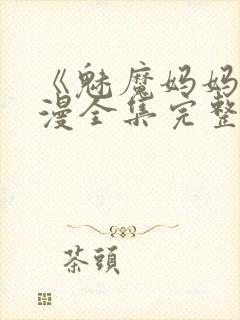 《魅魔妈妈
漫全集完整
茶頭